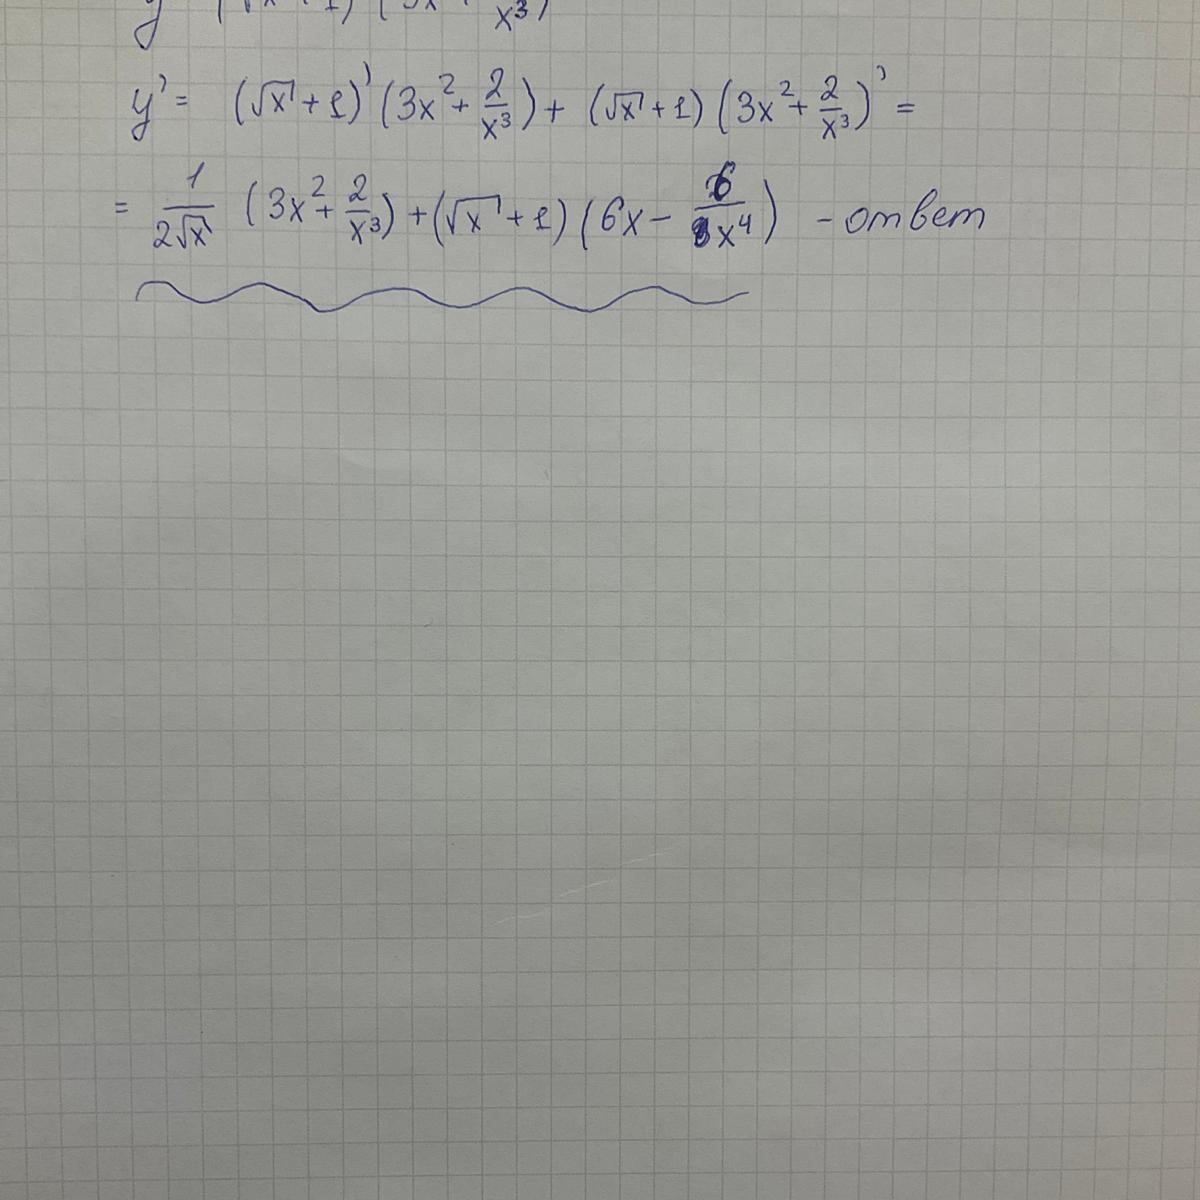 y' = (√x + 1)' (3x² + 2/x³) + (√x + 1) (3x² + 2/x³)' =
= 1/(2√x) (3x² + 2/x³) + (√x + 1) (6x − 6/x⁴) - ответ